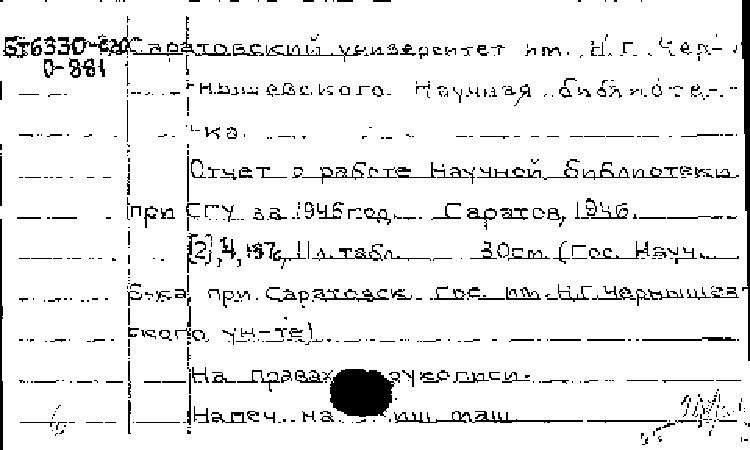 Саратовский университет им. Н.Г. Чер-
О-881
нышевского. Научная библиоте-
ка.
Отчет о работе Научной библиотеки
при СГУ за 1946 год. Саратов, 1946.
[2], 4, табл. 30см. (Гос. Науч.
б-ка при Саратовск. гос. им. Н.Г. Чернышев-
ского ун-те)
На правах рукописи.
Напеч. на пиш. маш.